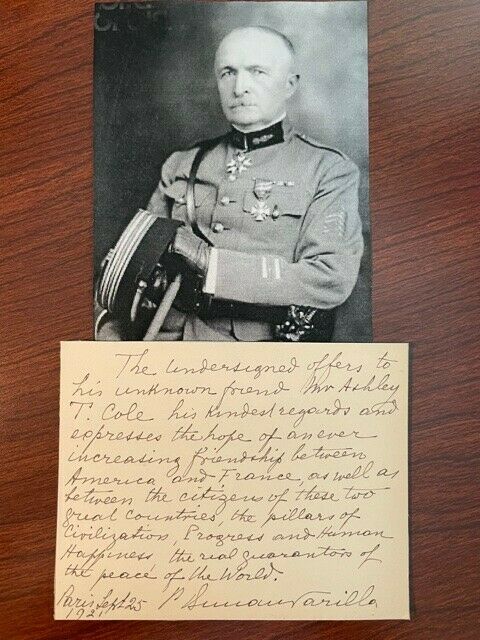 The undersigned offers to
his unknown friend Mr Ashley
T. Cole his kindest regards and
expresses the hope of an ever
increasing friendship between
America and France, as well as
between the citizens of these two
great countries the pillars of
Civilization, Progress and Human
Happiness the real guarantors of
the peace of the World.
Paris Sept 25 P. Bunau Varilla
1921